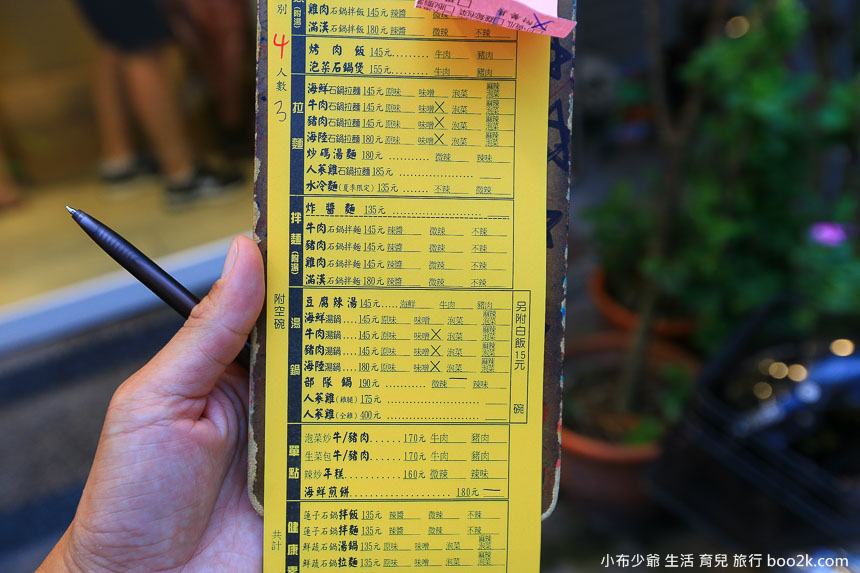 別
4
人數
3
共計
附空碗
(附湯)
雞肉石鍋拌飯 145元 辣醬 微辣 不辣
滿漢石鍋拌飯 180元 辣醬 微辣 不辣
烤肉飯 145元......... 牛肉 豬肉
泡菜石鍋煲 155元......... 牛肉 豬肉
拉麵
海鮮石鍋拉麵 145元 原味 味噌 泡菜 麻辣泡菜
牛肉石鍋拉麵 145元 原味 味噌 X 泡菜 麻辣泡菜
豬肉石鍋拉麵 145元 原味 味噌 X 泡菜 麻辣泡菜
海陸石鍋拉麵 180元 原味 味噌 X 泡菜 麻辣泡菜
炒碼湯麵 180元 ........... 微辣 辣味
人蔘雞石鍋拉麵 185元 ......................
水冷麵(夏季限定) 135元 ...... 不辣 微辣
拌麵(附湯)
炸醬麵 135元 ......................
牛肉石鍋拌麵 145元 辣醬 微辣 不辣
豬肉石鍋拌麵 145元 辣醬 微辣 不辣
雞肉石鍋拌麵 145元 辣醬 微辣 不辣
滿漢石鍋拌麵 180元 辣醬 微辣 不辣
湯鍋
豆腐辣湯 145元.....海鮮 牛肉 豬肉
海鮮湯鍋....145元 原味 味噌 泡菜 麻辣泡菜
牛肉湯鍋....145元 原味 味噌 X 泡菜 麻辣泡菜
豬肉湯鍋....145元 原味 味噌 X 泡菜 麻辣泡菜
海陸湯鍋....180元 原味 味噌 X 泡菜 麻辣泡菜
部隊鍋 190元 .......... 微辣 辣味
人蔘雞(雞腿) 175元 ..........................
人蔘雞(全雞) 400元 ..........................
另附白飯15元 碗
單點
泡菜炒牛/豬肉......170元 牛肉 豬肉
生菜包牛/豬肉......170元 牛肉 豬肉
辣炒年糕............160元 微辣 辣味
海鮮煎餅......................180元
健康素
蓮子石鍋拌飯 135元 辣醬 微辣 不辣
蓮子石鍋拌麵 135元 辣醬 微辣 不辣
鮮蔬石鍋湯鍋 135元 原味 味噌 泡菜 麻辣泡菜
鮮蔬石鍋拉麵 135元 原味 味噌 泡菜 麻辣泡菜
小布少爺 生活 育兒 旅行 boo2k.com